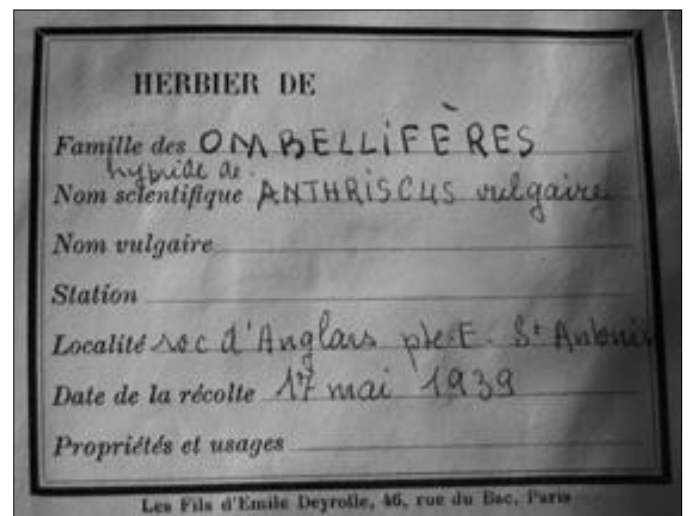 HERBIER DE
Famille des OMBELLIFÈRES
hybride de
Nom scientifique ANTHRISCUS vulgaire
Nom vulgaire
Station
Localité roc d'Anglars pte E. St Antonin
Date de la récolte 17 mai 1939
Propriétés et usages
Les Fils d'Emile Deyrolle, 46, rue du Bac, Paris